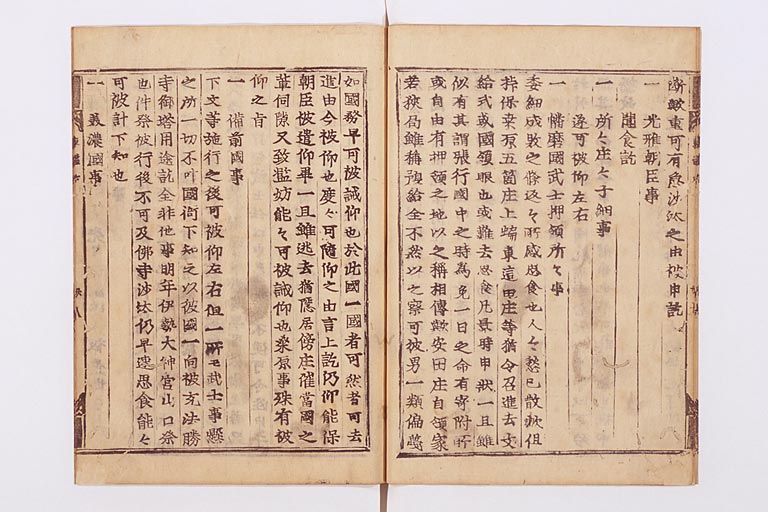 欤重可有
一　光雅朝臣事
聞食訖
一　所々庄々子細事
逐可被仰左右
一　播磨國武士押領所々事
委細成敗之條返々所感思食也人々愁已散歟但
指保桒原五箇庄上端東這田庄等猶令召進去文
給或國領
或自由有押領之地以之稱相傳歟安田庄自領家
似有其謂張行國中之時爲免一日之命有寄附所
若狹局雖稱預給全不然以之察可被
如國務早可被誡仰也於此國一國者可然者可去
進由今被仰也度々可隨仰之由言上訖仍仰能保
朝臣被遣仰畢一且雖逃去猶隱居傍庄催當國之
輩伺隙又致濫妨能々可被誡仰也桒原事殊有被
仰之旨
一　備前國事
下文等施行之後可被仰左右但一所モ武士事懸
之所一切不叶國衙下知之以彼國一向被充法勝
寺御塔用途訖全非他事明年伊勢大神宮山口祭
也件祭被行後不可及佛寺沙汰仍早逐思食能々
可被計下知也
一　美濃國事